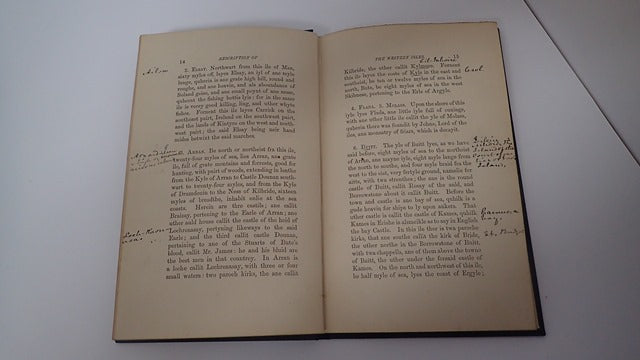 14 DESCRIPTION OF
2. ELSAY. Northwart from this ile of Man,
sixty myles off, layes Elsay, an iyl of ane myle
lange, quherin is ane grate high hill, round and
roughe, and ane heavin, and als aboundance of
Soland geise, and ane small poynt of ane nesse,
quherat the fishing bottis lyis; for in the same
ile is verey good killing, ling, and uther whyte
fishes. Forent this ile layes Carrick on the
southest pairt, Ireland on the southwest pairt,
and the lands of Kintyre on the west and north-
west pairt; the said Elsay being neir hand
midis betwixt the said marches.
3. ARRAN. Be north or northeist fra this ile,
twenty-four myles of sea, lies Arran, ane grate
ile, full of grate montains and forrests, good for
hunting, with pairt of woods, extending in lenthe
from the Kyle of Arran to Castle Dounan south-
wart to twenty-four myles, and from the Kyle
of Drumdonin to the Ness of Kilbride, sixteen
myles of breidthe, inhabit onlie at the sea
coasts. Herein are thre castils; ane callit
Braizay, pertening to the Earle of Arran; ane
uther auld house callit the castle of the heid of
Lochrenasay, pertyning likeways to the said
Earle; and the third callit castle Dounan,
pertaining to ane of the Stuarts of Bute's
blood, callit Mr. James: he and his bluid are
the best men in that countrey. In Arran is
a loche callit Lochrenasay, with three or four
small waters: two paroch kirks, the ane callit
THE WESTERN ISLES 15
Kilbride, the uther callit Kylmure. Forenent
this ile layes the coste of Kyle in the east and
southeist, be ten or twelve myles of sea in the
north, Bute, be eight myles of sea in the west
Skibness, pertening to the Erle of Argyle.
4. FLADA. 5. MOLASS. Upon the shore of this
iyle lyes Flada, ane little iyle full of cunings,
with ane uther little ile callit the yle of Molass,
quherin there was foundit by Johne, Lord of the
iles, ane monastry of friars, which is decayit.
6. BUITT. The yle of Buitt lyes, as we have
said before, eight myles of sea to the northeist
of Arran, ane mayne iyle, eight myle lange from
the north to the southe, and four myle braid fra the
west to the eist, very fertyle ground, namelie for
aitts, with two strenthes; the ane is the round
castle of Buitt, callit Rosay of the auld, and
Borrowstone about it callit Buitt. Before the
town and castle is ane bay of sea, quhilk is a
gude heavin for ships to ly upon ankers. That
uther castle is callit the castle of Kames, quhilk
Kames in Erishe is alsmeikle as to say in English
the bay Castle. In this ile ther is two paroche
kirks, that ane southe callit the kirk of Bride,
the uther northe in the Borrowstone of Buitt,
with two chappells, ane of them above the towne
of Buitt, the uther under the forsaid castle of
Kames. On the north and northwest of this ile,
be half myle of sea, lyes the coast of Ergyle;